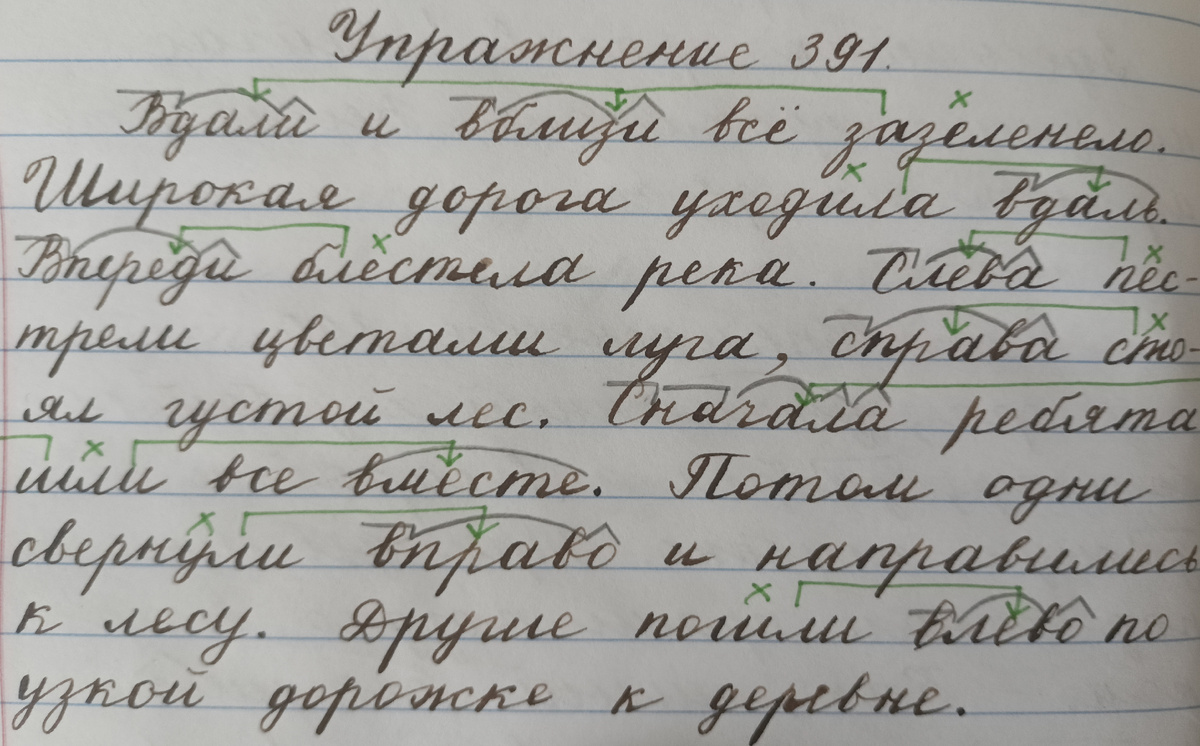 Упражнение 391.
Вдали и вблизи всё зазеленело.
Широкая дорога уходила вдаль.
Впереди блестела река. Слева пес-
трели цветами луга, справа сто-
ял густой лес. Сначала ребята
шли все вместе. Потом одни
свернули вправо и направились
к лесу. Другие пошли влево по
узкой дорожке к деревне.